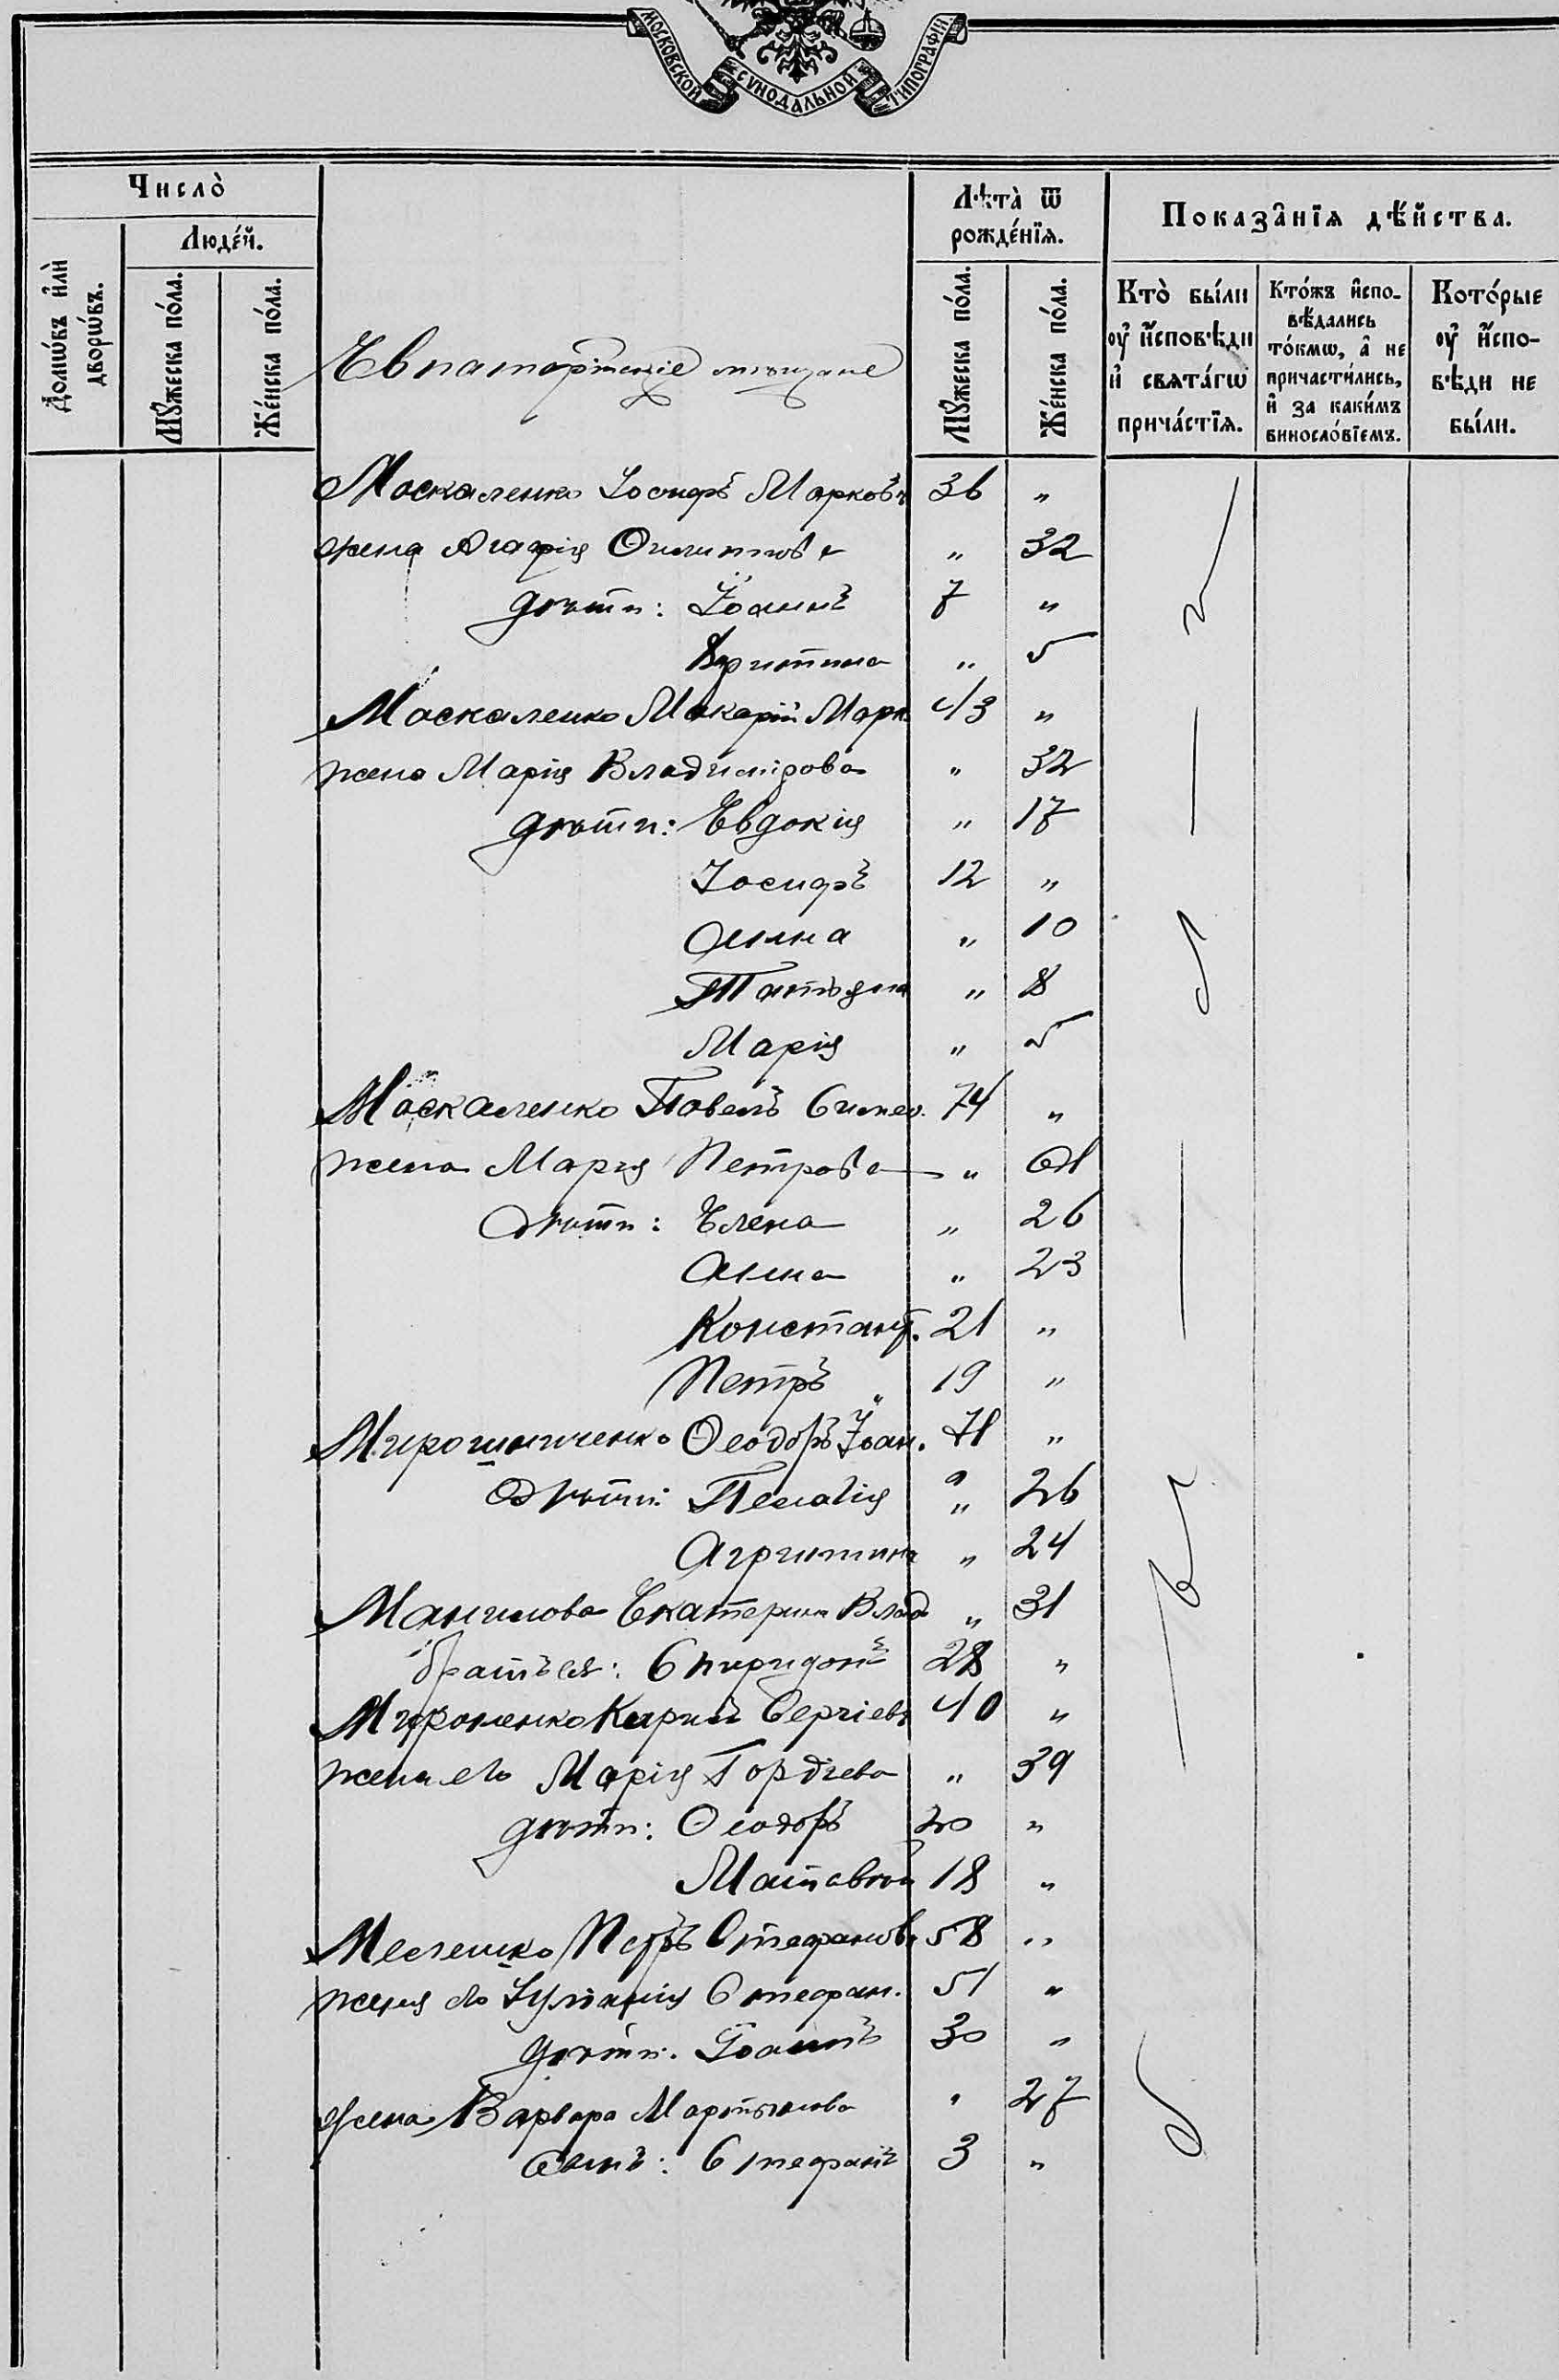 МОСКОВСКОЙ СѴНОДАЛЬНОЙ ТИПОГРАФІИ.
Число̀
Домѡ́въ и҆лѝ дворѡ́въ.
Люде́й.
Мꙋ́жеска по́ла.
Же́нска по́ла.
Лѣта̀ ѿ рожде́нїѧ.
Мꙋ́жеска по́ла.
Же́нска по́ла.
Показа̑нїѧ дѣ́йства.
Кто̀ бы́ли оу҆ и҆́сповѣди и҆ свѧта́гѡ прича́стїѧ.
Кто́жъ и҆сповѣ́дались то́кмѡ, а҆ не причасти́лись, и҆ за каки́мъ виносло́вїемъ.
Кото́рые оу҆ и҆́сповѣди не бы́ли.
Евпаторійскіе мѣщане
Москаленко Іосифъ Марковъ 36 „
жена Агафія Филиппова „ 32
дѣти: Іоаннъ 7 „
Христина „ 5
Москаленко Макарій Марк. 43 „
жена Марія Владимірова „ 32
дѣти: Евдокія „ 17
Іосифъ 12 „
Анна „ 10
Татьяна „ 8
Марія „ 5
Москаленко Павелъ Симео. 74 „
жена Марія Петрова „ 61
дѣти: Елена „ 26
Анна „ 23
Констант. 21 „
Петръ 19 „
Мирошниченко Ѳеодоръ Іоан. 71 „
дѣти: Пелагія „ 26
Агрипина „ 24
Манилова Екатерина Влад „ 31
братъ ея: Спиридонъ 28 „
Мироненко Кирилъ Сергіевъ 40 „
жена его Марія Гордіева „ 39
дѣти: Ѳеодоръ 20 „
Матѳвей 18 „
Мелешко Петръ Стефановъ 58 „
жена его Іуліанія Стефан. 51 „
дѣти: Іоаннъ 30 „
жена Варвара Мартынова „ 27
сынъ: Стефанъ 3 „